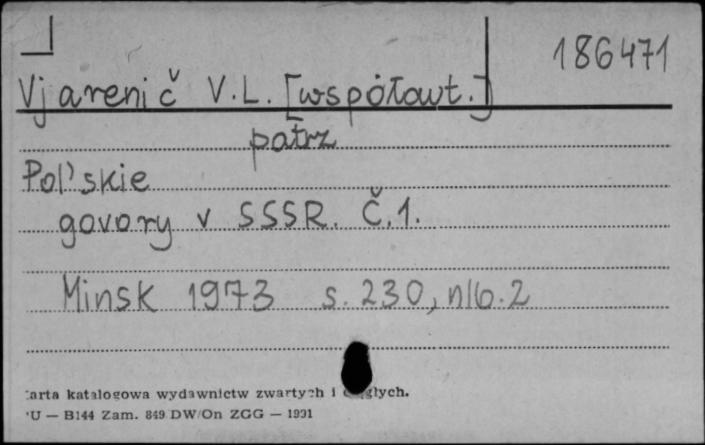 186471
Vjarenič V.L. [współaut.]
patrz
Pol'skie
govory v SSSR. Č.1.
Minsk 1973 s. 230, nlb. 2
arta katalogowa wydawnictw zwartych i
U — B144 Zam. 849 DW/On ZGG — 1991